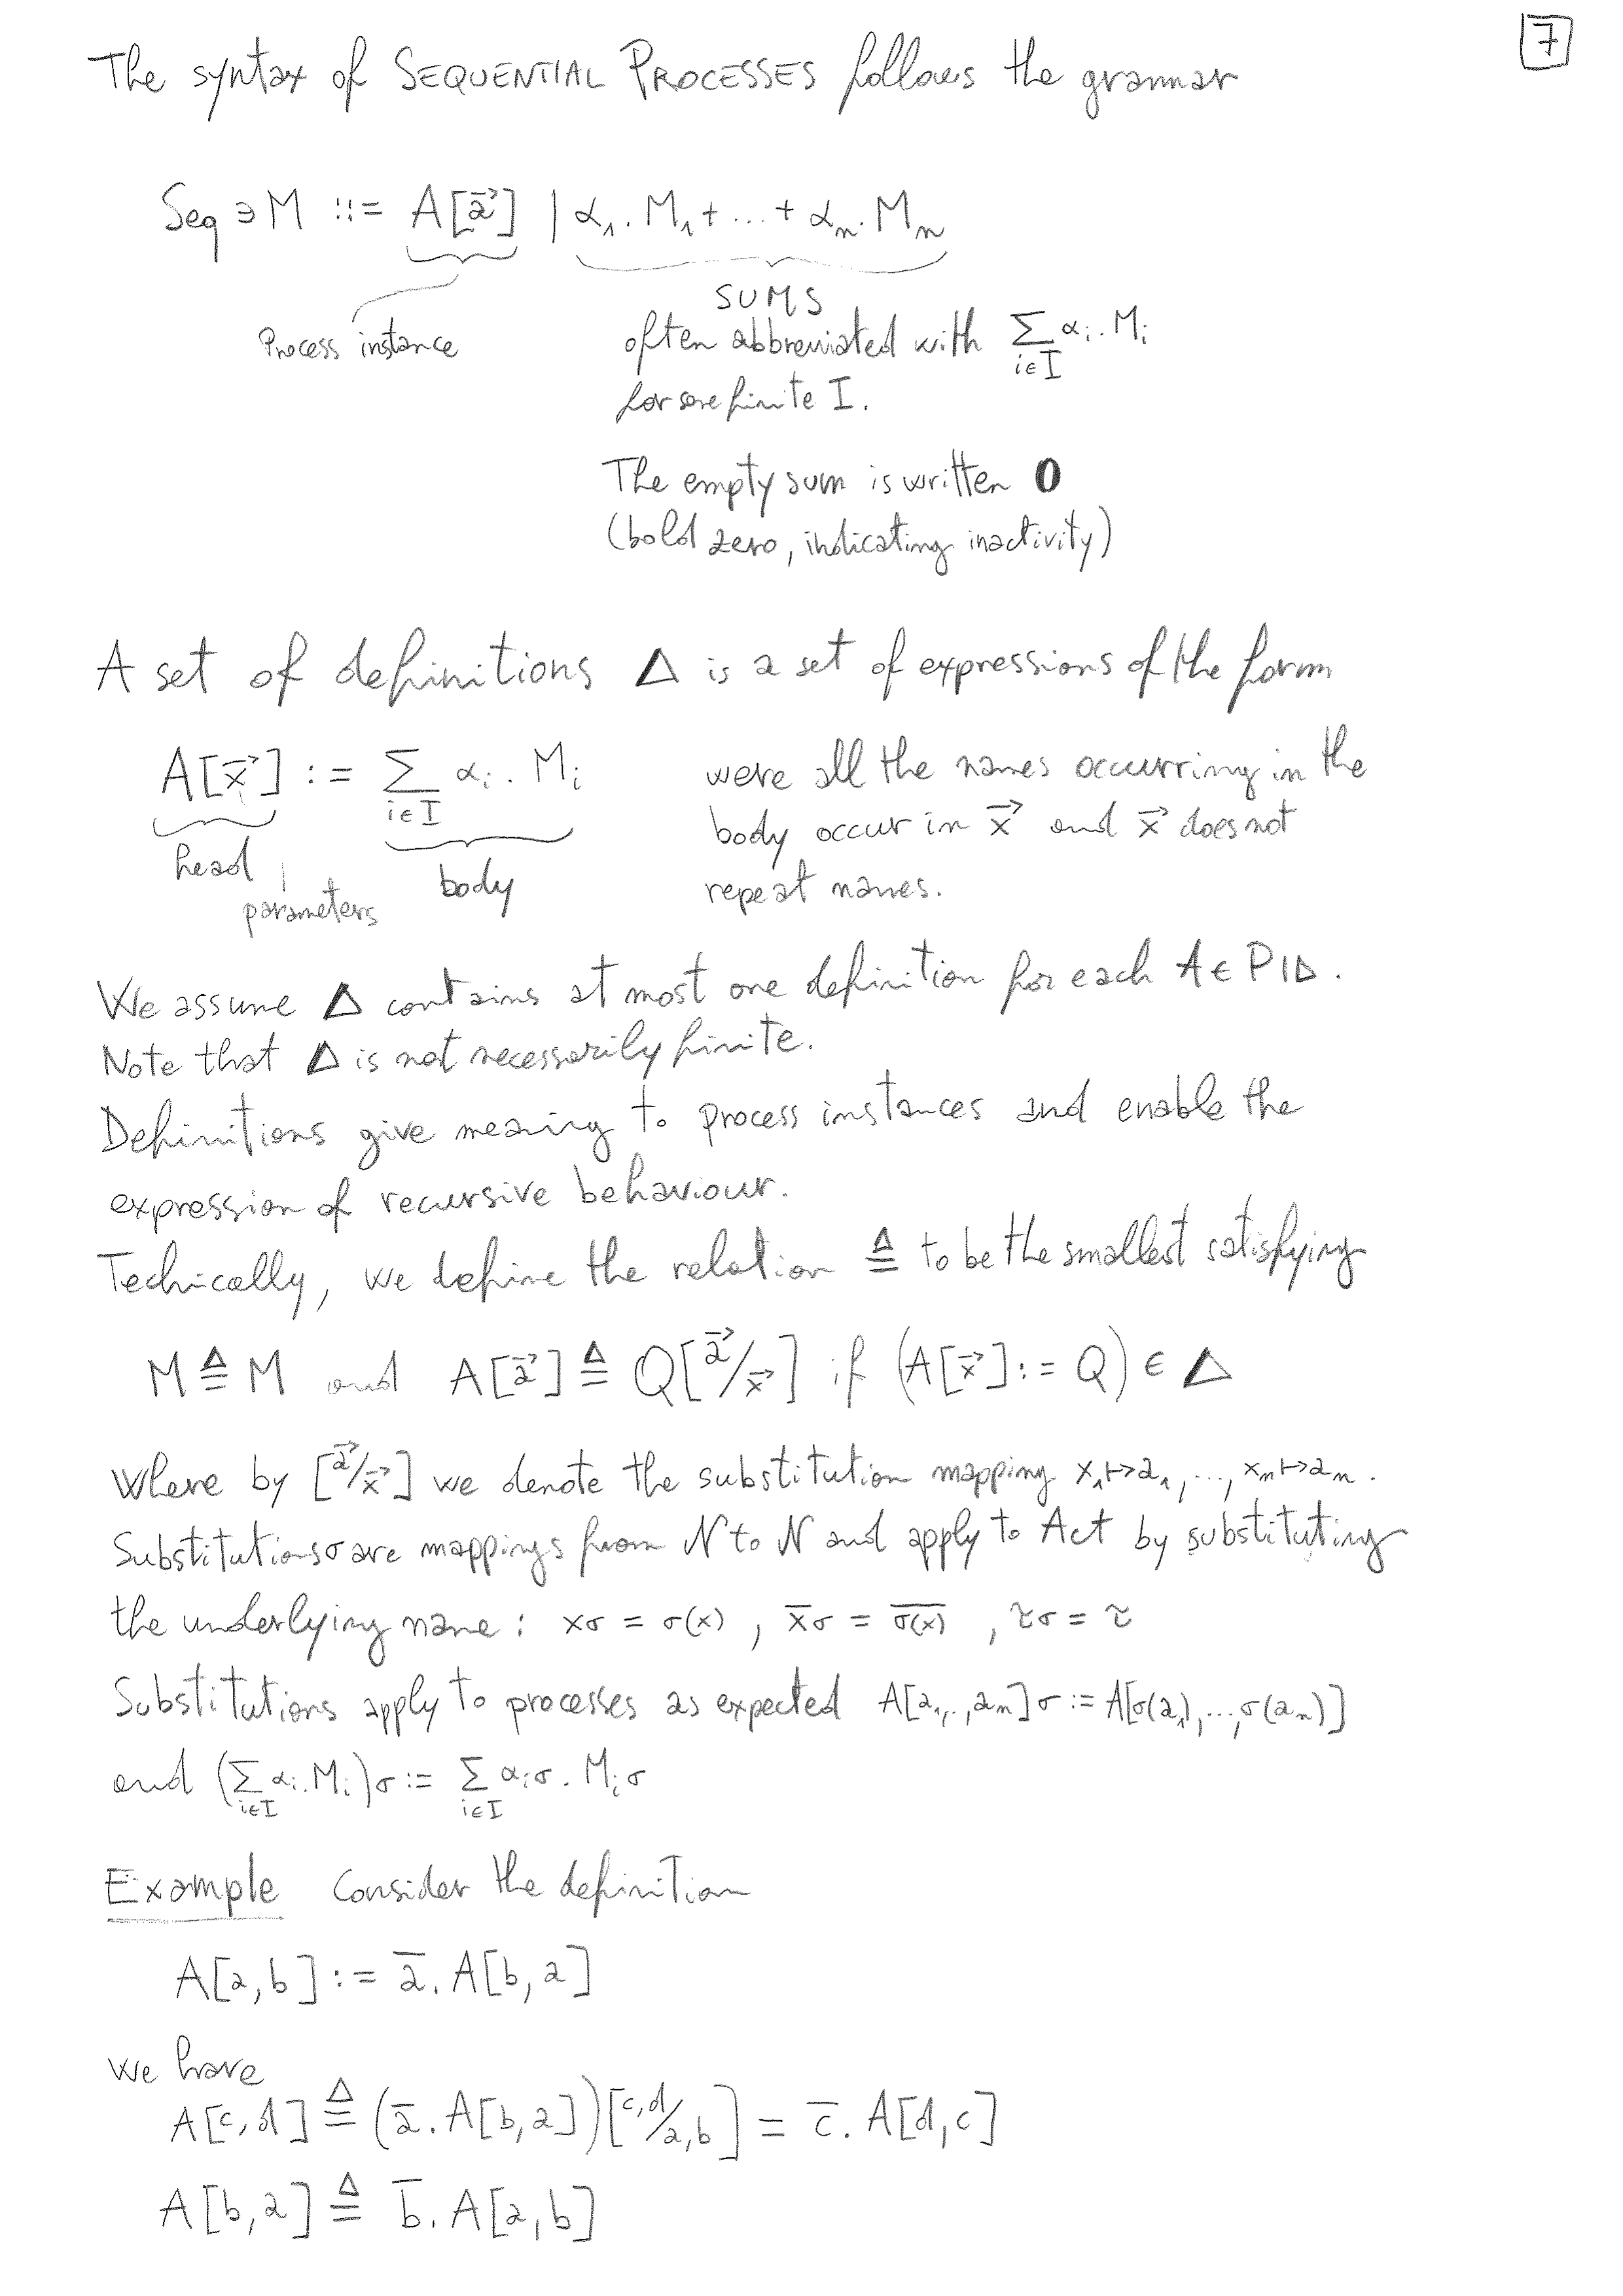 7
The syntax of SEQUENTIAL PROCESSES follows the grammar
Seq ∋ M ::= A[a⃗] | α₁.M₁ + ... + αₙ.Mₙ
SUMS
Process instance
often abbreviated with ∑_{i∈I} αᵢ.Mᵢ
for some finite I.
The empty sum is written 0
(bold zero, indicating inactivity)
A set of definitions Δ is a set of expressions of the form
A[x⃗] := ∑_{i∈I} αᵢ.Mᵢ
head
parameters
body
were all the names occurring in the
body occur in x⃗ and x⃗ does not
repeat names.
We assume Δ contains at most one definition for each A ∈ PID.
Note that Δ is not necessarily finite.
Definitions give meaning to process instances and enable the
expression of recursive behaviour.
Techically, we define the relation ≜ to be the smallest satisfying
M ≜ M and A[a⃗] ≜ Q[a⃗/x⃗] if (A[x⃗] := Q) ∈ Δ
Where by [a⃗/x⃗] we denote the substitution mapping x₁↦a₁, ..., xₙ↦aₙ.
Substitutions σ are mappings from N to N and apply to Act by substituting
the underlying name: xσ = σ(x), x̅σ = \overline{σ(x)}, τσ = τ
Substitutions apply to processes as expected A[a₁,..,aₙ]σ := A[σ(a₁),...,σ(aₙ)]
and (∑_{i∈I} αᵢ.Mᵢ)σ := ∑_{i∈I} αᵢσ.Mᵢσ
Example Consider the definition
A[a,b] := a̅.A[b,a]
we have
A[c,d] ≜ (a̅.A[b,a])[c,d/a,b] = c̅.A[d,c]
A[b,a] ≜ b̅.A[a,b]